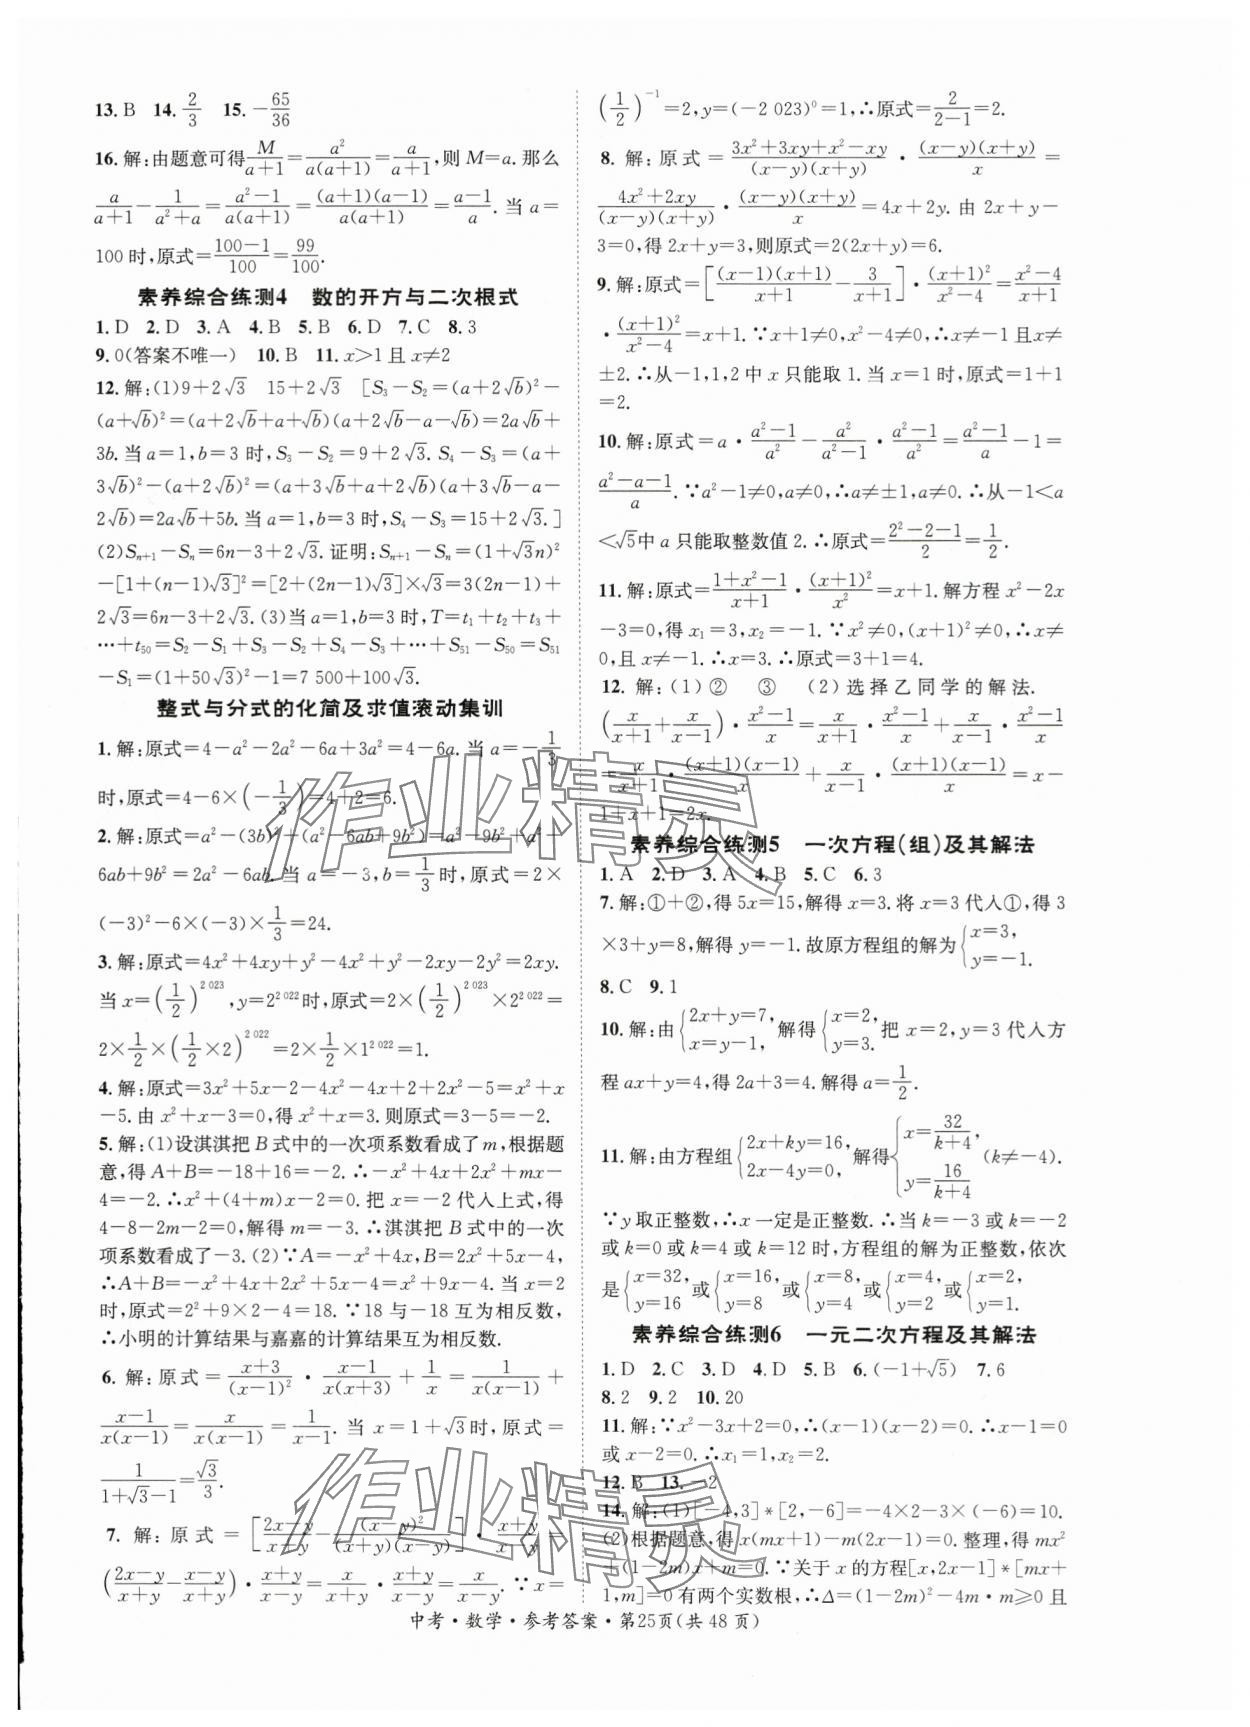 13. B 14. 2/3 15. -65/36
16. 解:由题意可得M/(a+1)=a²/(a(a+1))=a/(a+1),则 M=a. 那么
a/(a+1)-1/(a²+a)=(a²-1)/(a(a+1))=((a+1)(a-1))/(a(a+1))=(a-1)/a. 当 a=
100 时,原式=(100-1)/100=99/100.
素养综合练测4 数的开方与二次根式
1. D 2. D 3. A 4. B 5. B 6. D 7. C 8. 3
9. 0(答案不唯一) 10. B 11. x>1 且 x≠2
12. 解:(1)9+2√3 15+2√3 [S₃-S₂=(a+2√b)²-
(a+√b)²=(a+2√b+a+√b)(a+2√b-a-√b)=2a√b+
3b. 当 a=1,b=3 时,S₃-S₂=9+2√3. S₄-S₃=(a+
3√b)²-(a+2√b)²=(a+3√b+a+2√b)(a+3√b-a-
2√b)=2a√b+5b. 当 a=1,b=3 时,S₄-S₃=15+2√3.]
(2)Sₙ₊₁-Sₙ=6n-3+2√3. 证明:Sₙ₊₁-Sₙ=(1+√3n)²
-[1+(n-1)√3]²=[2+(2n-1)√3]×√3=3(2n-1)+
2√3=6n-3+2√3. (3)当 a=1,b=3 时,T=t₁+t₂+t₃+
…+t₅₀=S₂-S₁+S₃-S₂+S₄-S₃+…+S₅₁-S₅₀=S₅₁
-S₁=(1+50√3)²-1=7 500+100√3.
整式与分式的化简及求值滚动集训
1. 解:原式=4-a²-2a²-6a+3a²=4-6a. 当 a=-1/3
时,原式=4-6×(-1/3)=4+2=6.
2. 解:原式=a²-(3b)²+(a²-6ab+9b²)=a²-9b²+a²-
6ab+9b²=2a²-6ab. 当 a=-3,b=1/3时,原式=2×
(-3)²-6×(-3)×1/3=24.
3. 解:原式=4x²+4xy+y²-4x²+y²-2xy-2y²=2xy.
当 x=(1/2)^2 023,y=2^2 022时,原式=2×(1/2)^2 023×2^2 022=
2×1/2×(1/2×2)^2 022=2×1/2×1^2 022=1.
4. 解:原式=3x²+5x-2-4x²-4x+2+2x²-5=x²+x
-5. 由 x²+x-3=0,得 x²+x=3. 则原式=3-5=-2.
5. 解:(1)设淇淇把 B 式中的一次项系数看成了 m,根据题
意,得 A+B=-18+16=-2. ∴-x²+4x+2x²+mx-
4=-2. ∴x²+(4+m)x-2=0. 把 x=-2 代入上式,得
4-8-2m-2=0,解得 m=-3. ∴淇淇把 B 式中的一次
项系数看成了-3. (2)∵A=-x²+4x,B=2x²+5x-4,
∴A+B=-x²+4x+2x²+5x-4=x²+9x-4. 当 x=2
时,原式=2²+9×2-4=18. ∵18 与-18 互为相反数,
∴小明的计算结果与嘉嘉的计算结果互为相反数.
6. 解:原式=(x+3)/(x-1)²·(x-1)/(x(x+3))+1/x=1/(x(x-1))+
(x-1)/(x(x-1))=x/(x(x-1))=1/(x-1). 当 x=1+√3时,原式=
1/(1+√3-1)=√3/3.
7. 解:原式=[(2x-y)/(x+y)-(x-y)²/((x+y)(x-y))]·(x+y)/x=
((2x-y)/(x+y)-(x-y)/(x+y))·(x+y)/x=x/(x+y)·(x+y)/x. ∵x=
(1/2)⁻¹=2,y=(-2 023)⁰=1,∴原式=2/(2-1)=2.
8. 解:原式=(3x²+3xy+x²-xy)/((x-y)(x+y))·((x-y)(x+y))/x=
(4x²+2xy)/((x-y)(x+y))·((x-y)(x+y))/x=4x+2y. 由 2x+y-
3=0,得 2x+y=3,则原式=2(2x+y)=6.
9. 解:原式=[((x-1)(x+1))/(x+1)-3/(x+1)]·(x+1)²/(x²-4)=(x²-4)/(x+1)
·(x+1)²/(x²-4)=x+1. ∵x+1≠0,x²-4≠0,∴x≠-1 且 x≠
±2. ∴从-1,1,2 中 x 只能取 1. 当 x=1时,原式=1+1
=2.
10. 解:原式=a·(a²-1)/a²-a²/(a²-1)·(a²-1)/a²=(a²-1)/a-1=
(a²-a-1)/a. ∵a²-1≠0,a≠0,∴a≠±1,a≠0. ∴从-1<a
<√5中 a 只能取整数值 2. ∴原式=(2²-2-1)/2=1/2.
11. 解:原式=(1+x²-1)/(x+1)·(x+1)²/x²=x+1. 解方程 x²-2x
-3=0,得 x₁=3,x₂=-1. ∵x²≠0,(x+1)²≠0,∴x≠
0,且 x≠-1. ∴x=3. ∴原式=3+1=4.
12. 解:(1)② ③ (2)选择乙同学的解法.
(x/(x+1)+x/(x-1))·(x²-1)/x=x/(x+1)·(x²-1)/x+x/(x-1)·(x²-1)/x
=x/(x+1)·((x+1)(x-1))/x+x/(x-1)·((x+1)(x-1))/x=x-
1+x+1=2x.
素养综合练测5 一次方程(组)及其解法
1. A 2. D 3. A 4. B 5. C 6. 3
7. 解:①+②,得 5x=15,解得 x=3. 将 x=3 代入①,得 3
×3+y=8,解得 y=-1. 故原方程组的解为{x=3, y=-1.
8. C 9. 1
10. 解:由{2x+y=7, x=y-1, 解得{x=2, y=3. 把 x=2,y=3 代入方
程 ax+y=4,得 2a+3=4. 解得 a=1/2.
11. 解:由方程组{2x+ky=16, 2x-4y=0, 解得{x=32/(k+4), y=16/(k+4) (k≠-4).
∵y 取正整数,∴x 一定是正整数. ∴当 k=-3 或 k=-2
或 k=0 或 k=4 或 k=12 时,方程组的解为正整数,依次
是{x=32, y=16 或{x=16, y=8 或{x=8, y=4 或{x=4, y=2 或{x=2, y=1.
素养综合练测6 一元二次方程及其解法
1. D 2. C 3. D 4. D 5. B 6. (-1+√5) 7. 6
8. 2 9. 2 10. 20
11. 解:∵x²-3x+2=0,∴(x-1)(x-2)=0. ∴x-1=0
或 x-2=0. ∴x₁=1,x₂=2.
12. B 13. -2
14. 解:(1)[-4,3]*[2,-6]=-4×2-3×(-6)=10.
(2)根据题意,得 x(mx+1)-m(2x-1)=0. 整理,得 mx²
+(1-2m)x+m=0. ∵关于 x 的方程[x,2x-1]*[mx+
1,m]=0 有两个实数根,∴Δ=(1-2m)²-4m·m≥0 且
中考·数学·参考答案·第25页(共 48 页)
作业精灵
作业精灵